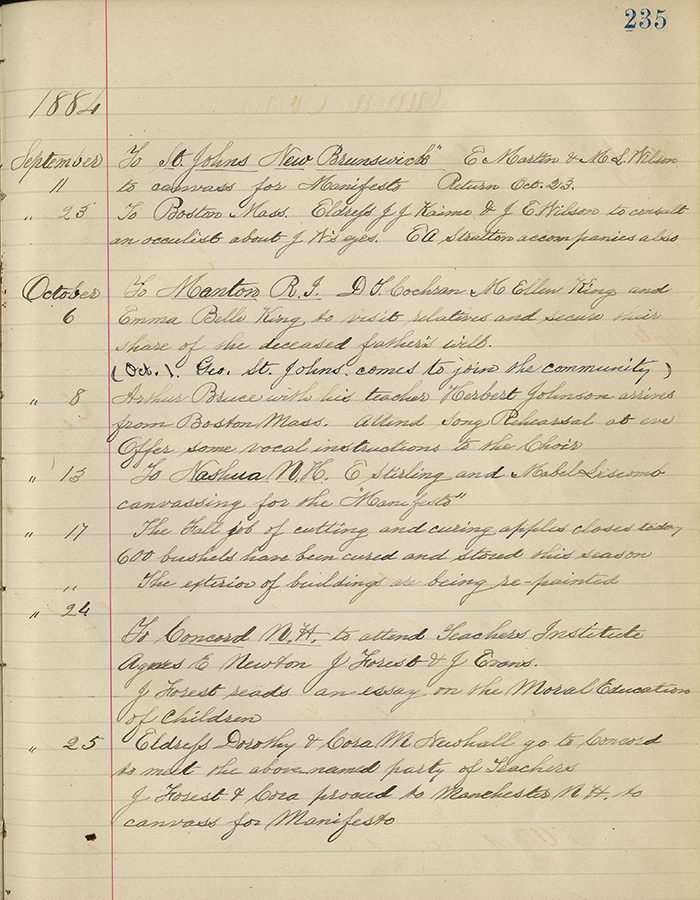 235
1884
September To St. Johns New Brunswick" E Martin & M L. Wilson
11 to canvass for Manifesto Return Oct. 23.
" 23 To Boston Mass. Eldress J J Kaime & J E Wilson to consult
an occulist about J W's eyes. E A Stratton accompanies also
October To Manton R. I. D T. Cochran M Ellen King and
6 Emma Belle King to visit relatives and secure their
share of the deceased father's will.
(Oct.). Geo. St. Johns. comes to join the community)
" 8 Arthur Bruce with his teacher Herbert Johnson arrives
from Boston Mass. Attend Song Rehearsal at eve
Offer some vocal instructions to the Choir
" 13 To Nashua N. H. E Stirling and Mabel Liscomb
canvassing for the "Manifesto"
" 17 The Fall job of cutting and curing apples closes today
600 bushels have been cured and stored this season
" The exterior of buildings are being re-painted
" 24
To Concord N. H. to attend Teachers Institute
Agnes E Newton J Forest & J Evans.
J Forest reads an essay on the Moral Education
of Children
" 25 Eldress Dorothy & Cora M Newhall go to Concord
to meet the above named party of Teachers
J Forest & Cora proceed to Manchester N. H. to
canvass for Manifesto